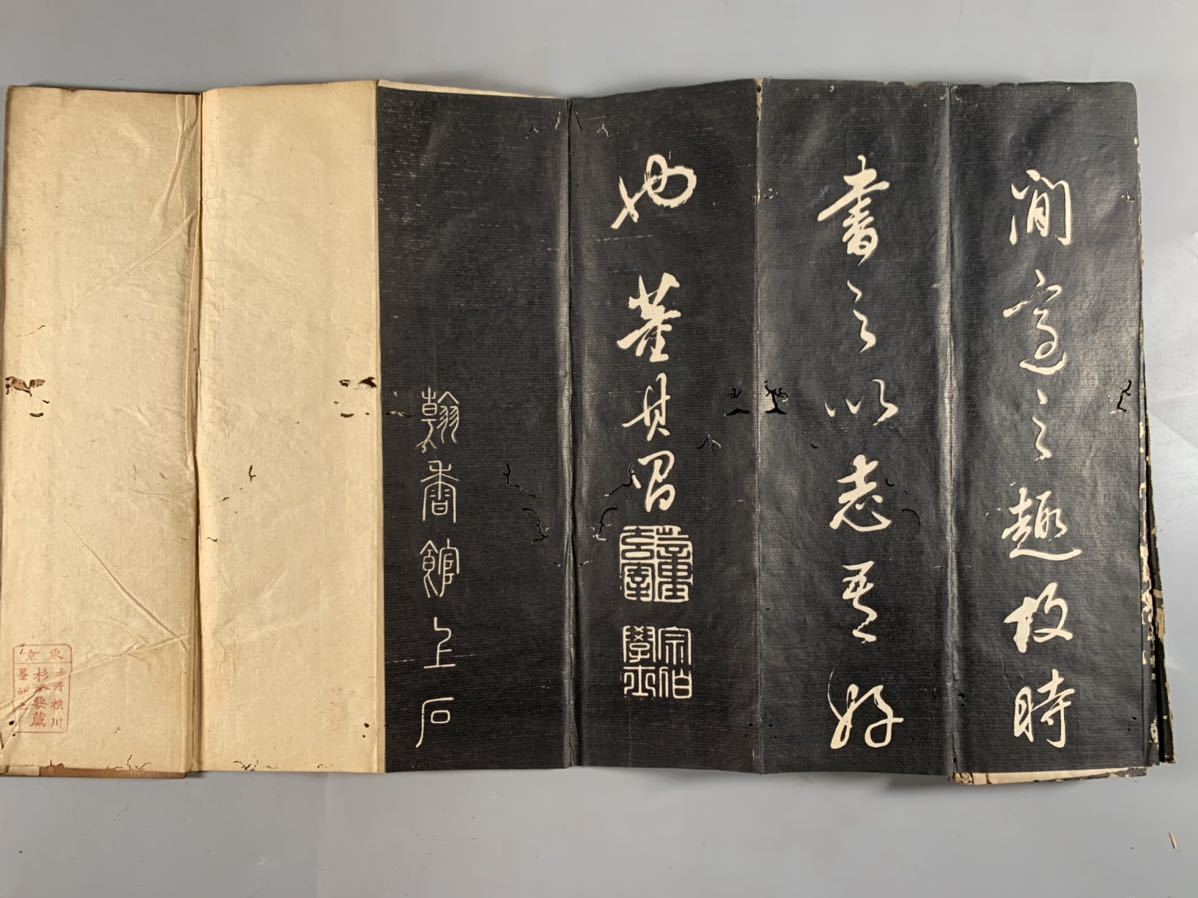 閒適之趣故時
書之以志吾好
也 董其昌
宗伯學士
翰香館上石
東京